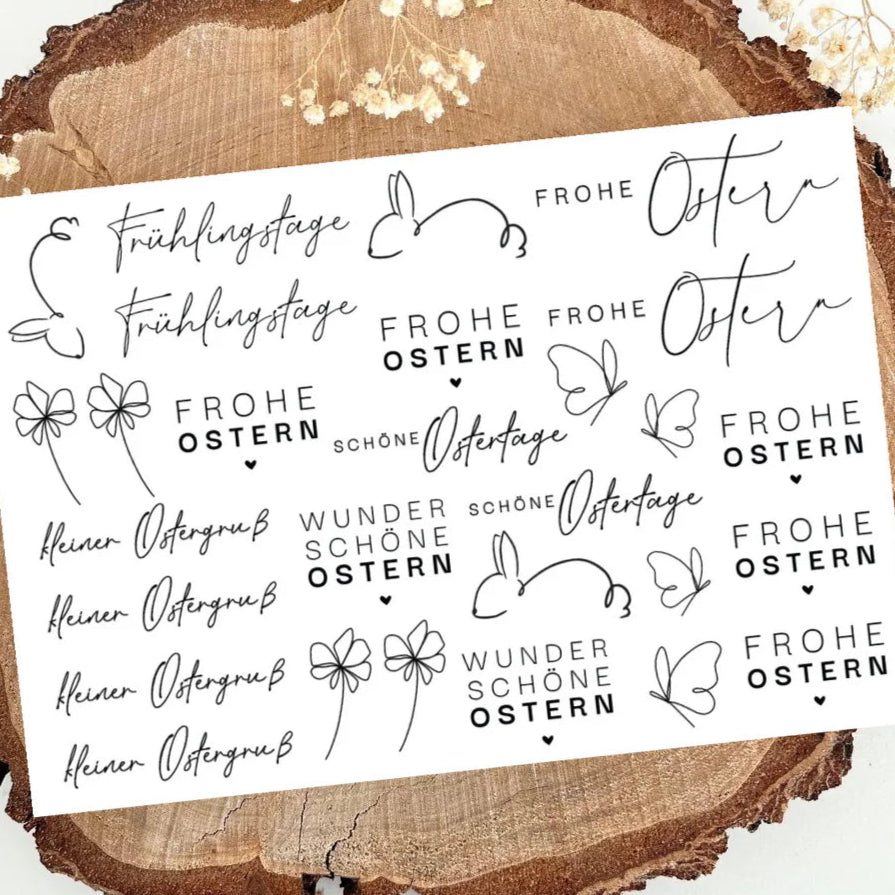 Frühlingstage
FROHE Ostern
Frühlingstage
FROHE
OSTERN
FROHE Ostern
FROHE
OSTERN
SCHÖNE Ostertage
FROHE
OSTERN
kleiner Ostergruß
WUNDER
SCHÖNE
OSTERN
SCHÖNE Ostertage
FROHE
OSTERN
kleiner Ostergruß
kleiner Ostergruß
WUNDER
SCHÖNE
OSTERN
FROHE
OSTERN
kleiner Ostergruß